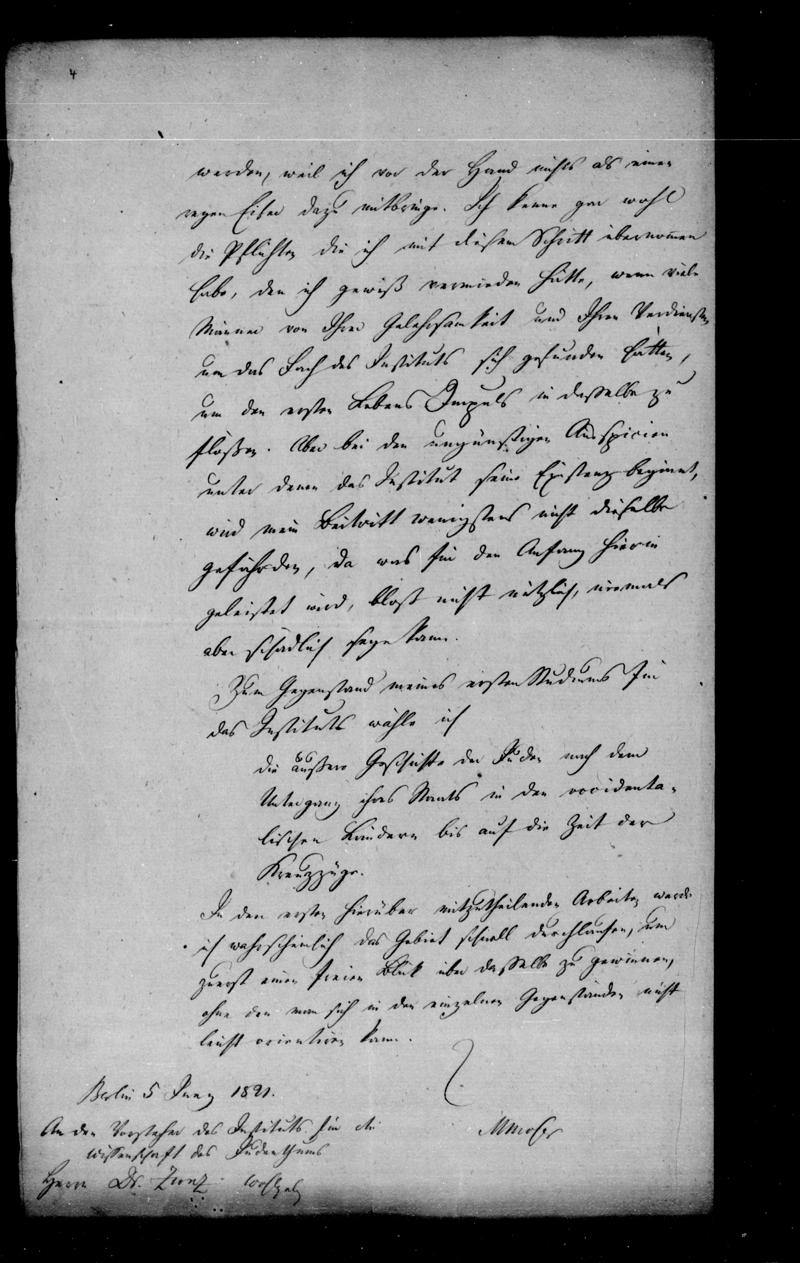 4
werden, weil ich vor der Hand nichts als einen
regen Eifer dazu mitbringe. Ich kenne gar wohl
die Pflichten die ich mit diesem Schritt übernommen
habe, den ich gewiß vermieden hätte, wenn viele
Männer von Ihrer Gelehrsamkeit und Ihren Verdiensten
um das Fach des Instituts sich gefunden hätten,
um den ersten Lebens Impuls in dasselbe zu
flößen. Aber bei den ungünstigen Auspicien
unter denen das Institut seine Existenz beginnt,
wird mein Beitritt wenigstens nicht dieselbe
gefährden, da was für den Anfang hierin
geleistet wird, bloß nicht nützlich, niemals
aber schädlich seyn kann.
Zum Gegenstand meines ersten Studiums für
das Instituts wähle ich
die äußere Geschichte der Juden nach dem
Untergang ihres Staats in den occidenta-
lischen Ländern bis auf die Zeit der
Kreuzzüge.
In den ersten hierüber mitzutheilenden Arbeiten werde
ich wahrscheinlich das Gebiet schnell durchlaufen, um
zuerst einen freien Blick über dasselbe zu gewinnen,
ohne den man sich in den einzelnen Gegenständen nicht
leicht orientiren kann.
Berlin 5 Juny 1821.
An den Vorsteher des Instituts für die
MMoser
Wissenschaft des Judenthums
Herrn Dr. Zunz